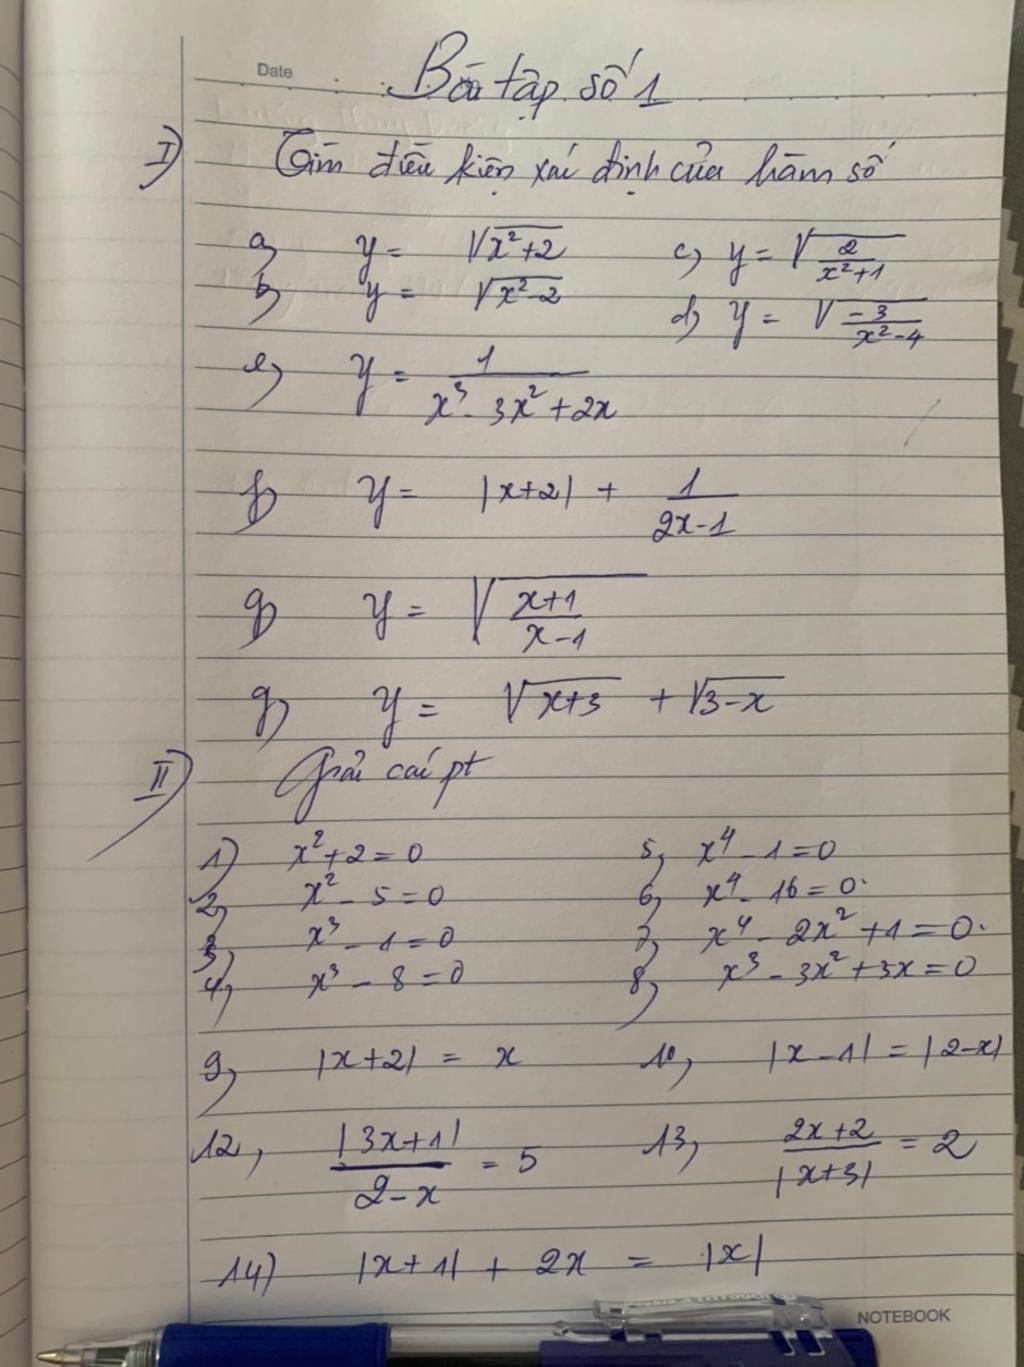 Date
Bài tập số 1
I) Tìm điều kiện xác định của hàm số
a) y = √(x²+2) c) y = √(2/(x²+1))
b) y = √(x²-2) d) y = √(-3/(x²-4))
e) y = 1/(x³ - 3x² + 2x)
f) y = |x+2| + 1/(2x-1)
g) y = √((x+1)/(x-1))
g) y = √(x+3) + √(3-x)
II) Giải các pt
1) x² + 2 = 0 5, x⁴ - 1 = 0
2, x² - 5 = 0 6, x⁴ - 16 = 0.
3, x³ - 1 = 0 7, x⁴ - 2x² + 1 = 0.
4, x³ - 8 = 0 8, x³ - 3x² + 3x = 0
9, |x+2| = x 10, |x-1| = |2-x|
12, |3x+1|/(2-x) = 5 13, (2x+2)/|x+3| = 2
14) |x+1| + 2x = |x|
NOTEBOOK